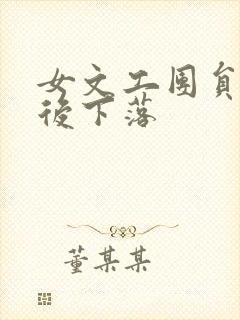 女文工團員
後下落
董某某